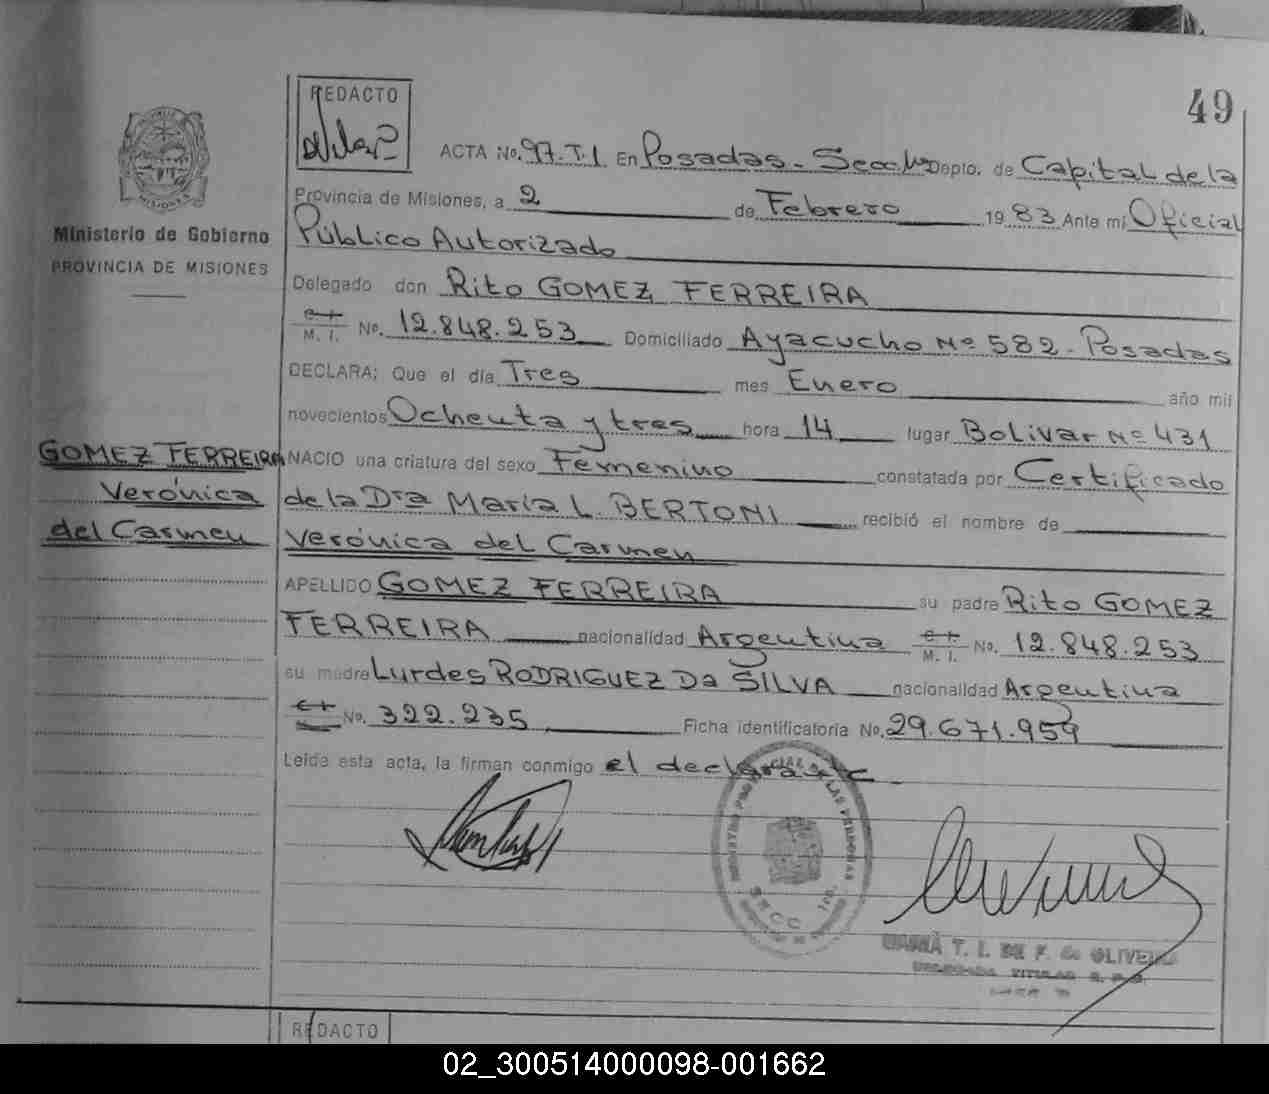 49
REDACTO
ACTA No. 97. T. I En Posadas - Secc. 1ra Depto. de Capital de la
Provincia de Misiones, a 2 de Febrero 1983 Ante mi Oficial
Público Autorizado
Delegado don Rito GOMEZ FERREIRA
M. I. No. 12.848.253 Domiciliado Ayacucho Nº 582 - Posadas
DECLARA: Que el día Tres mes Enero año mil
novecientos Ochenta y tres hora 14 lugar Bolivar Nº 431
NACIO una criatura del sexo Femenino constatada por Certificado
de la Dra María L BERTONI recibió el nombre de
Verónica del Carmen
APELLIDO GOMEZ FERREIRA su padre Rito GOMEZ
FERREIRA nacionalidad Argentina M. I. No. 12.848.253
su madre Lurdes RODRIGUEZ Da SILVA nacionalidad Argentina
No. 322.235 Ficha identificatoria No. 29.671.959
Leída esta acta, la firman conmigo el declarante
Ministerio de Gobierno
PROVINCIA DE MISIONES
GOMEZ FERREIRA
Verónica
del Carmen
MISIONES
REGISTRO PROVINCIAL DE LAS PERSONAS
SECC. 1ra.
T. I. DE F. de OLIVEIRA
TITULAR
REDACTO
02_300514000098-001662